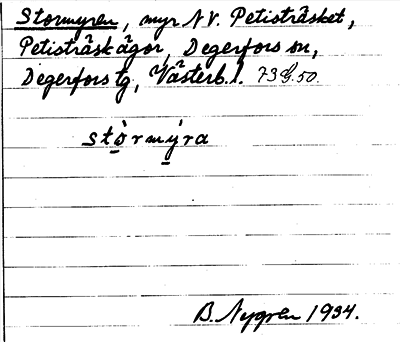 Stormyren, myr N V. Petisträsket,
Petisträsk ägor, Degerfors sn,
Degerfors tg, Västerb. l. 73 G. 50.
stòrmýra
B. Nygren 1934.